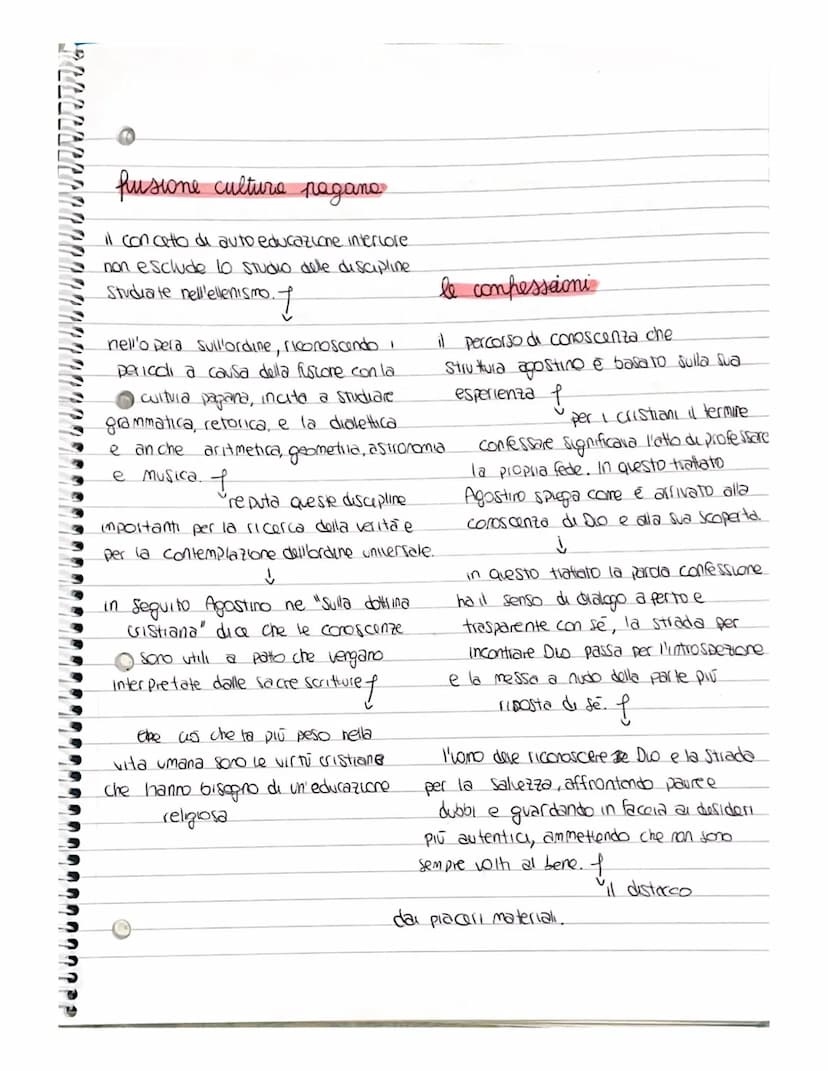 fusione cultura pagana
il concetto di autoeducazione interiore
non esclude lo studio delle discipline
studiate nell'ellenismo.
nell'opera sull'ordine, riconoscendo i
pericoli a causa della fusione con la
cultura pagana, incita a studiare
grammatica, retorica, e la dialettica
e anche aritmetica, geometria, astronomia
e musica.
reputa queste discipline
importanti per la ricerca della verità e
per la contemplazione dell'ordine universale.
in seguito Agostino ne "Sulla dottrina
cristiana" dice che le conoscenze
sono utili a patto che vengano
interpretate dalle sacre scritture
ciò che ha più peso nella
vita umana sono le virtù cristiane
che hanno bisogno di un'educazione
religiosa
le confessioni
il percorso di conoscenza che
struttura agostino è basato sulla sua
esperienza
per i cristiani il termine
confessare significava l'atto di professare
la propria fede. In questo trattato
Agostino spiega come è arrivato alla
conoscenza di Dio e alla sua scoperta.
in questo trattato la parola confessione
ha il senso di dialogo aperto e
trasparente con sé, la strada per
incontrare Dio passa per l'introspezione
e la messa a nudo della parte più
riposta di sé.
l'uomo deve riconoscere Dio e la strada
per la salvezza, affrontando paure e
dubbi e guardando in faccia ai desideri
più autentici, ammettendo che non sono
sempre volti al bene.
il distacco
dai piaceri materiali.